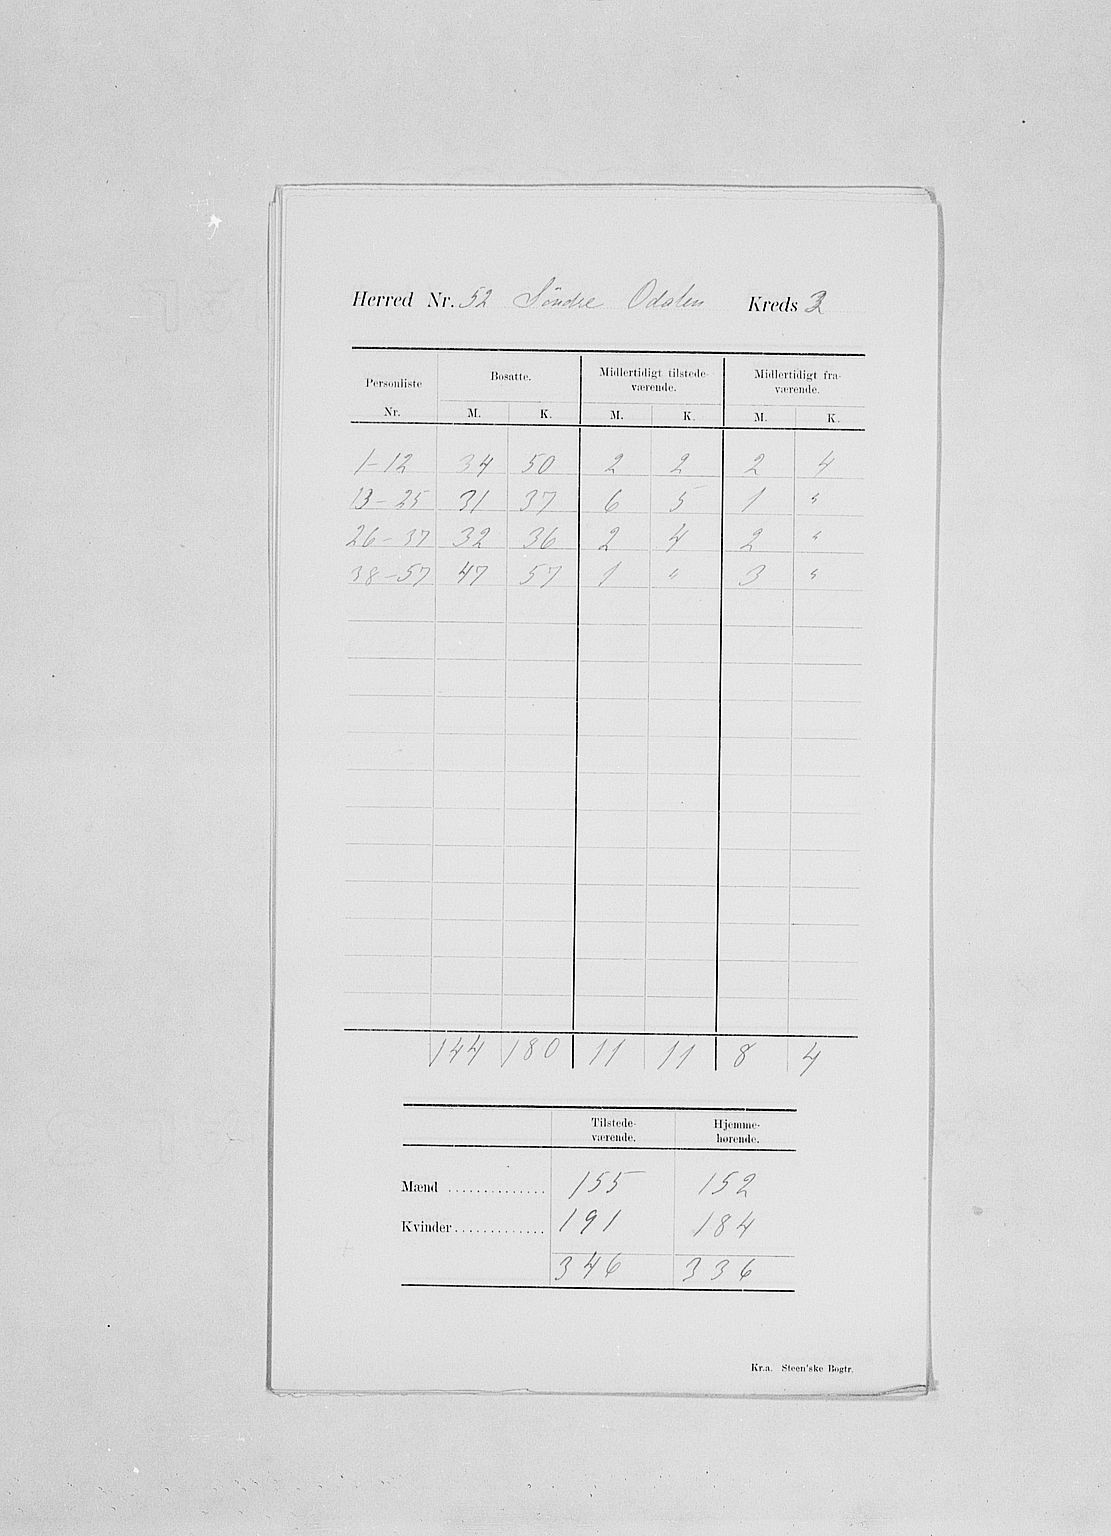 Herred Nr. 52 Söndre Odalen Kreds 3
Personliste Nr. Bosatte. Midlertidigt tilstede-værende. Midlertidigt fra-værende.
M. K. M. K. M. K.
1-12 34 50 2 2 2 4
13-25 31 37 6 5 1 "
26-37 32 36 2 4 2 "
38-57 47 57 1 " 3 "
144 180 11 11 8 4
Tilstede-værende. Hjemme-hørende.
Mænd .............. 155 152
Kvinder............. 191 184
346 336
Kr.a. Steen'ske Bogtr.